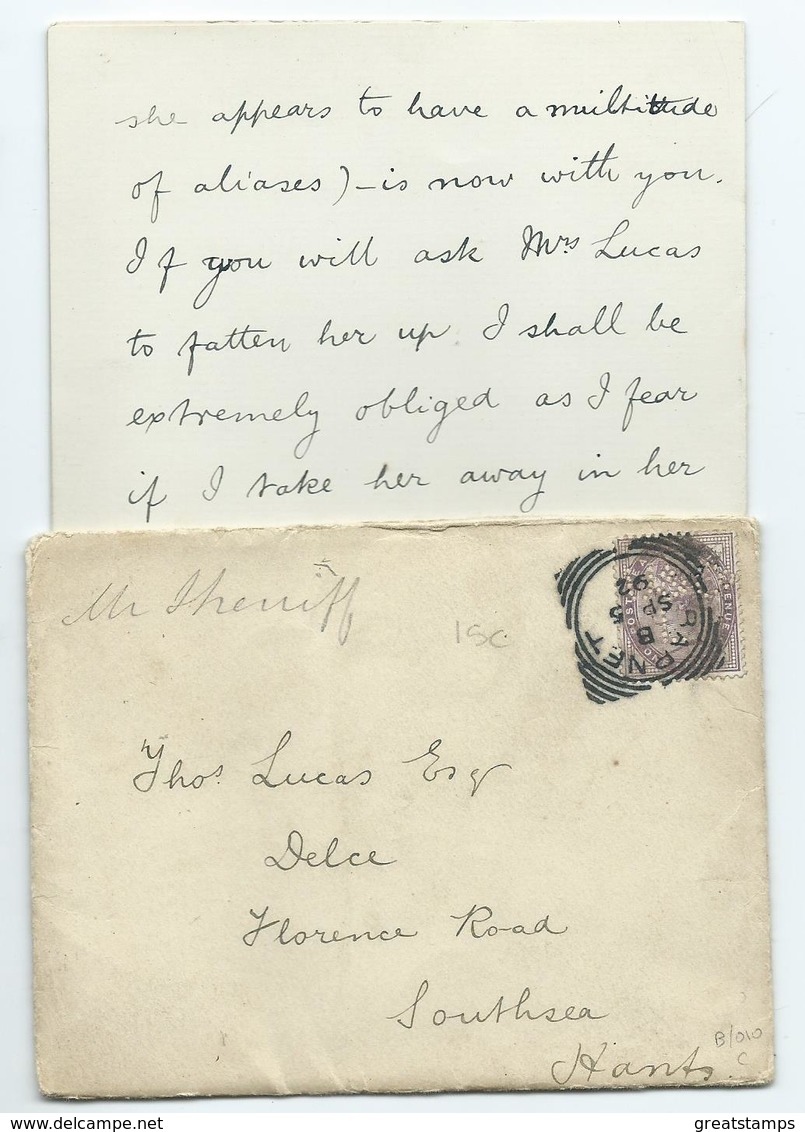 she appears to have a multitude
of aliases) - is now with you.
If you will ask Mrs Lucas
to fatten her up I shall be
extremely obliged as I fear
if I take her away in her
Mr Sherriff
15c
BARNET
B
SP 5
92
Thos. Lucas Esqr
Delce
Florence Road
Southsea
Hants.
B/010
C
greatstamps